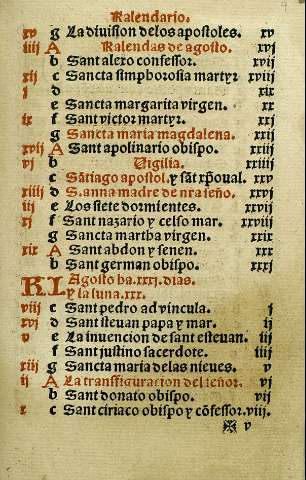 Kalendario.
xv g La diuision delos apostoles. xv
iiij A Kalendas de agosto. xvj
b Sant alexo confessor. xvij
xij c Sancta simphorosia martyr xviij
j d xix
e Sancta margarita virgen. xx
ix f Sant victor martyr. xxj
g Sancta maria magdalena. xxij
xvij A Sant apolinario obispo. xxiij
vj b Vigilia. xxiiij
c Sãtiago apostol. y sãt xp̃oual. xxv
xiiij d S. anna madre de nr̃a seño. xxvj
iij e Los siete dormientes. xxvij
xj f Sant nazario y celso mar. xxviij
g Sancta martha virgen. xxix
xix A Sant abdon y senen. xxx
b Sant german obispo. xxxj
KL Agosto ha .xxxj. dias.
y la luna .xxx.
viij c Sant pedro ad vincula. j
xvj d Sant steuan papa y mar. ij
v e La inuencion de sant esteuan. iij
f Sant justino sacerdote. iiij
xiij g Sancta maria delas nieues. v
ij A La transfiguracion del señor. vj
b Sant donato obispo. vij
x c Sant ciriaco obispo y cõfessor. viij.
v